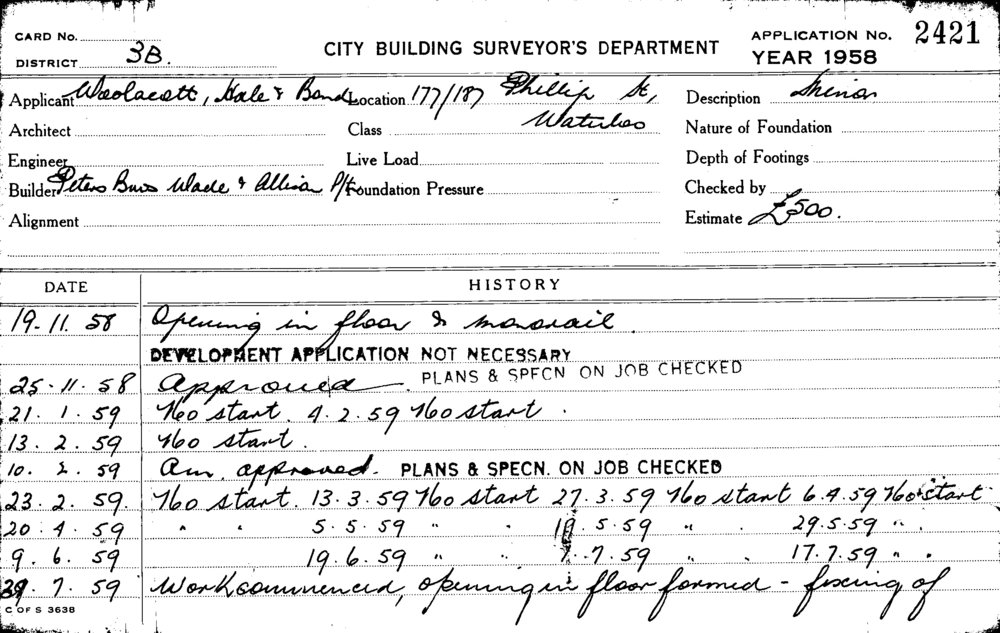 CARD No.
DISTRICT 3B.
CITY BUILDING SURVEYOR'S DEPARTMENT
APPLICATION No. 2421
YEAR 1958
Applicant Woolacott, Hale & Bond Location 177/187 Phillip St, Description Minor
Waterloo
Architect Class Nature of Foundation
Engineer Live Load Depth of Footings
Builder Peters Bros Wade & Allison P/L Foundation Pressure Checked by
Alignment Estimate £500.
DATE HISTORY
19.11.58 Opening in floor & monorail.
DEVELOPMENT APPLICATION NOT NECESSARY
25.11.58 Approved. PLANS & SPECN ON JOB CHECKED
21.1.59 No start. 4.2.59 No start.
13.2.59 No start.
10.2.59 Am. approved. PLANS & SPECN. ON JOB CHECKED
23.2.59. No start. 13.3.59 No start 27.3.59 No start 6.4.59 No start.
20.4.59 " " 5.5.59 " " 19.5.59 " " 29.5.59 " "
9.6.59 19.6.59 " " 7.7.59 " " 17.7.59 " "
7.59 Work commenced, opening in floor formed - fixing of
C OF S 3638